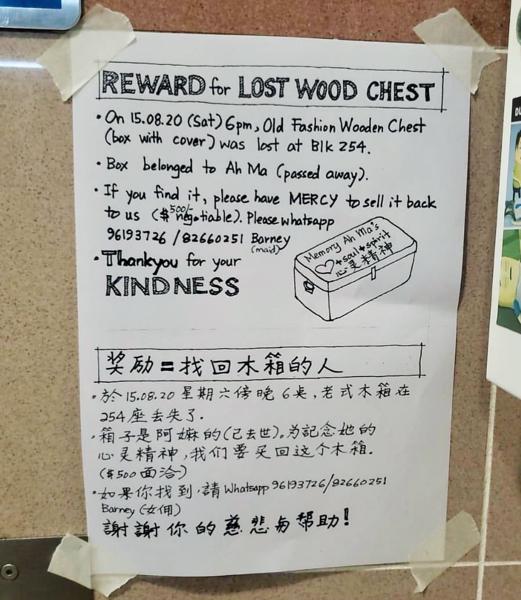 REWARD for LOST WOOD CHEST
• On 15.08.20 (Sat) 6pm, Old Fashion Wooden Chest
(box with cover) was lost at Blk 254.
• Box belonged to Ah Ma (passed away).
• If you find it, please have MERCY to sell it back
to us ($500/- negotiable). Please whatsapp
96193726 / 82660251 Barney
(maid)
• Thankyou for your
KINDNESS
Memory Ah Ma's
♡ + soul + spirit
心灵精神
奖励 = 找回木箱的人
• 於 15.08.20 星期六傍晚 6桌, 老式木箱在
254座丢失了.
• 箱子是阿嫲的(已去世)。为記念她的
心灵精神, 我们要买回这个木箱.
($500 面洽)
• 如果你找到, 請 Whatsapp 96193726/82660251
Barney (女佣)
謝謝你的慈悲与帮助!